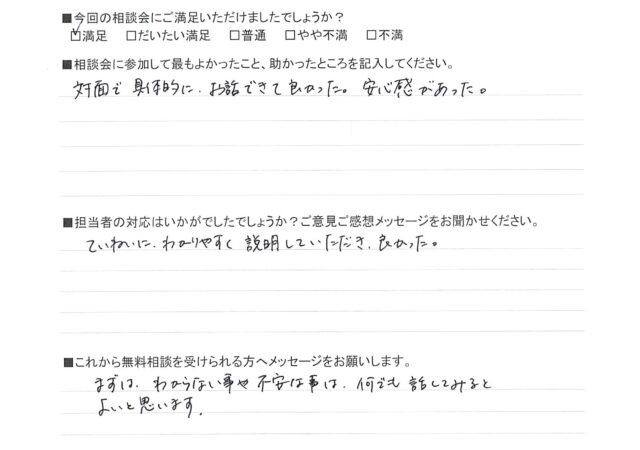 ■今回の相談会にご満足いただけましたでしょうか？
☑満足 □だいたい満足 □普通 □やや不満 □不満
■相談会に参加して最もよかったこと、助かったところを記入してください。
対面で具体的に、お話できて良かった。安心感があった。
■担当者の対応はいかがでしたでしょうか？ご意見ご感想メッセージをお聞かせください。
ていねいに、わかりやすく説明していただき、良かった。
■これから無料相談を受けられる方へメッセージをお願いします。
まずは、わからない事や不安な事は、何でも話してみると
よいと思います。